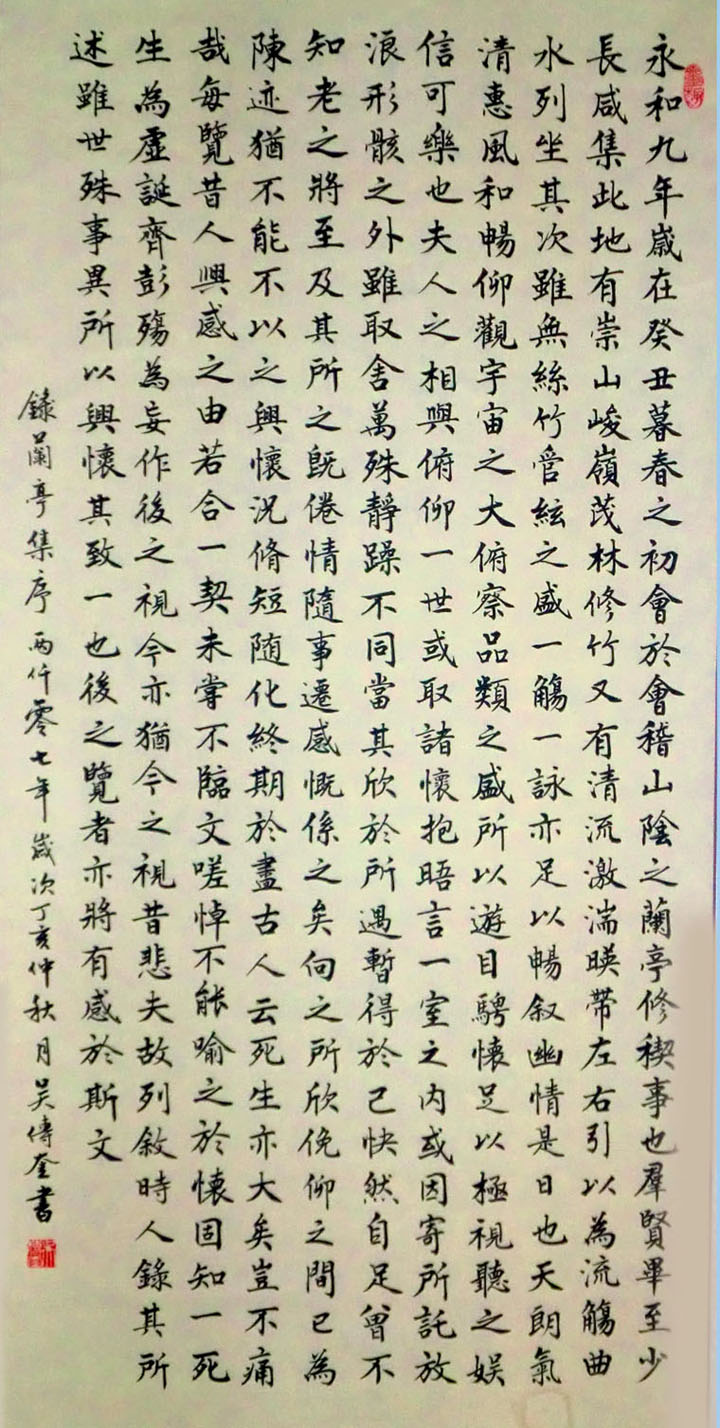 永和九年歲在癸丑暮春之初會於會稽山陰之蘭亭修稧事也羣賢畢至少
長咸集此地有崇山峻嶺茂林修竹又有清流激湍暎帶左右引以為流觴曲
水列坐其次雖無絲竹管絃之盛一觴一詠亦足以暢叙幽情是日也天朗氣
清惠風和暢仰觀宇宙之大俯察品類之盛所以遊目騁懷足以極視聽之娱
信可樂也夫人之相與俯仰一世或取諸懷抱晤言一室之内或因寄所託放
浪形骸之外雖取舍萬殊靜躁不同當其欣於所遇暫得於己快然自足曾不
知老之將至及其所之既倦情隨事遷感慨係之矣向之所欣俛仰之間已為
陳迹猶不能不以之興懷況脩短随化終期於盡古人云死生亦大矣豈不痛
哉每覽昔人興感之由若合一契未嘗不臨文嗟悼不能喻之於懷固知一死
生為虛誕齊彭殤為妄作後之視今亦猶今之視昔悲夫故列敘時人錄其所
述雖世殊事異所以興懷其致一也後之覽者亦將有感於斯文
錄蘭亭集序 兩仟零七年歲次丁亥仲秋月吴傳奎書